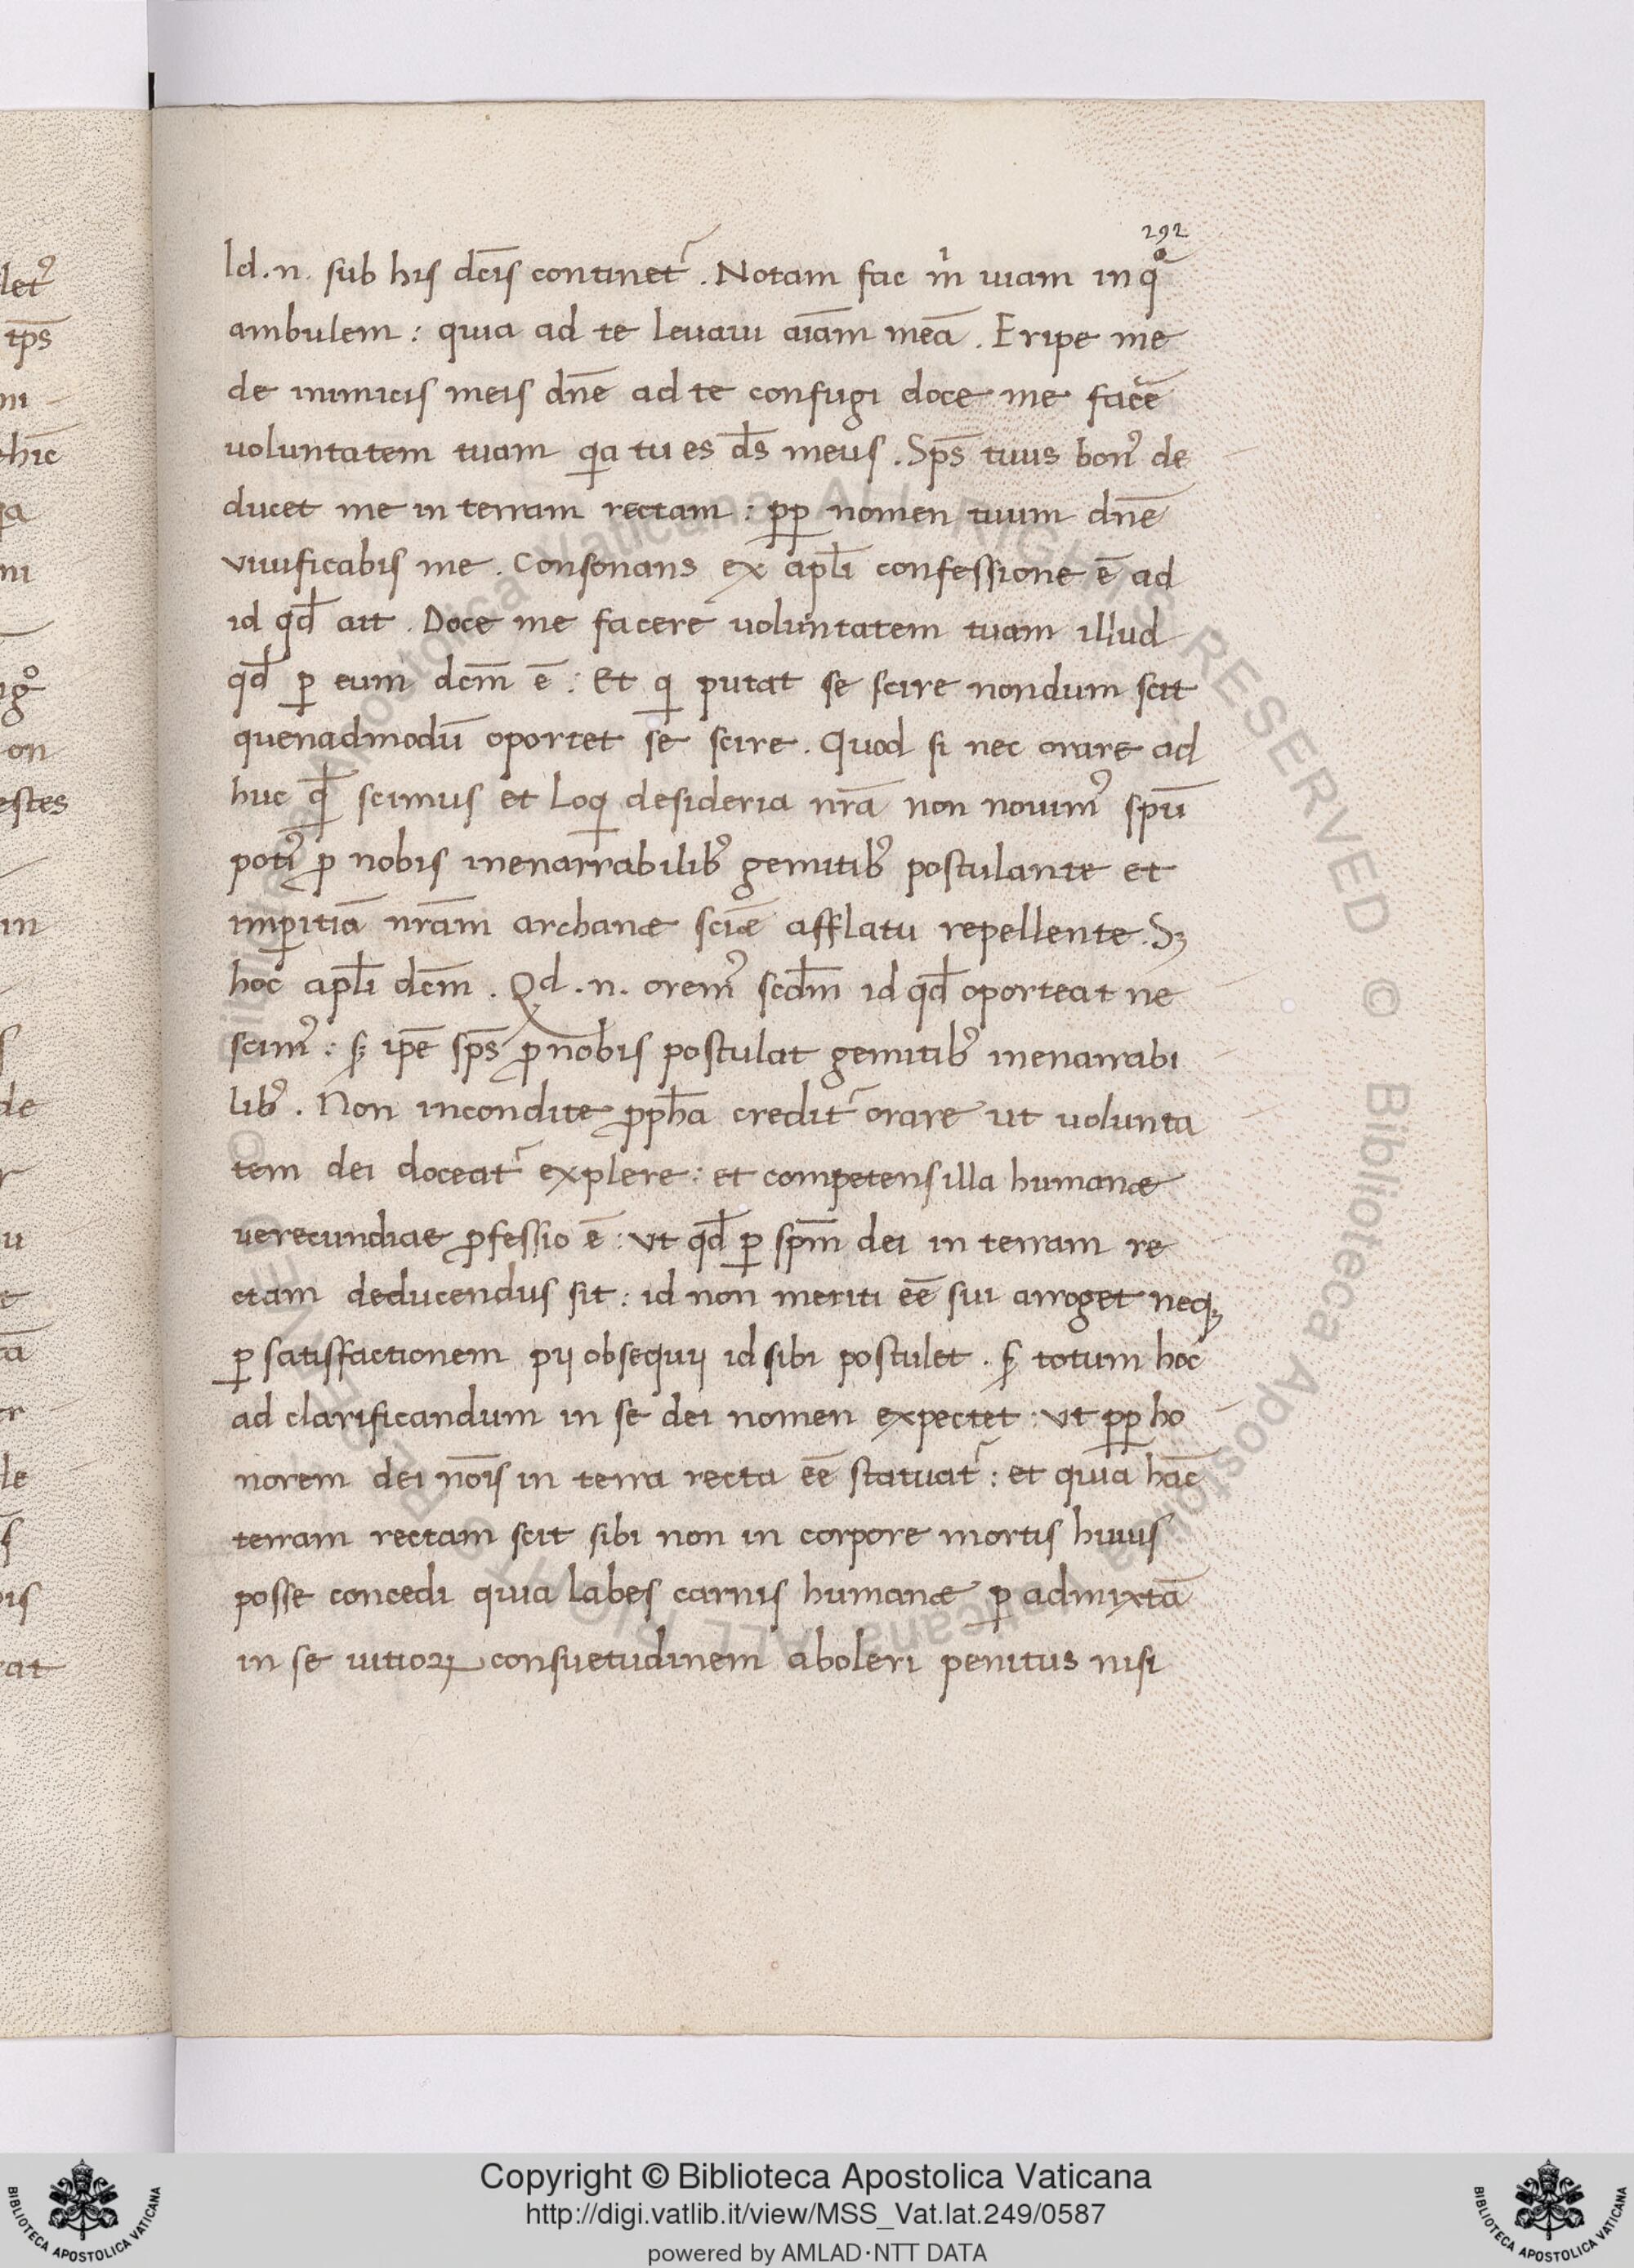 292
let᾿
tp̄s
ni
hīc
qa
ni
igº
on
estes
in
s
de
r
u
t
tā
er
le
s̄
bis
rat
Id .n. sub his dc̄is continet᾿ . Notam fac m̊ uiam in qͣ
ambulem : quia ad te leuaui aīam meā . Eripe me
de inimicis meis dn̄e ad te confugi doce me facē
uoluntatem tuam qa tu es d̄s meus . Sp̄s tuus bon᾿ de
ducet me in terram rectam : pp nomen tuum dn̄e
viuificabis me . Consonans ex apl̄i confessione ē ad
id qd̄ ait . Doce me facere uoluntatem tuam illud
qd̄ ꝑ eum dcm̄ ē : Et q putat se scire nondum scit
quenadmodū oportet se scire . Quod si nec orare ad
huc qd̄ scimus et loq desideria nr̄a non nouim᾿ spū
poti᾿ ꝓ nobis inenarrabilib᾿ gemitib᾿ postulante et
imꝑitiā nr̄am archanæ sciǣ afflatu repellente . Sꝫ
hoc apl̄i dcm̄ . Qd .n. orem᾿ scdm̄ id qd̄ oporteat ne
scim᾿ : sꝫ ip̄e sp̄s ꝓ nobis postulat gemitib᾿ inenarrabi
lib᾿ . Non incondite ꝓph̄a credit᾿ orare ut uolunta
tem dei doceat᾿ explere : et competens illa humanæ
uerecundiae ꝓfessio ē : ut qd̄ ꝑ spm̄ dei in terram re
ctam deducendus sit : id non meriti eē sui arroget neqꝫ
ꝑ satisffactionem pij obsequij id sibi postulet . sꝫ totum hoc
ad clarificandum in se dei nomen expectet : ut pp ho
norem dei nōis in terra recta eē statuat᾿ : et quia hāc
terram rectam scit sibi non in corpore mortis huius
posse concedi quia labes carnis humanæ ꝑ admixtā
in se uitioꝝ consuetudinem aboleri penitus nisi
© Biblioteca Apostolica Vaticana ALL RIGHTS RESERVED
Copyright © Biblioteca Apostolica Vaticana
http://digi.vatlib.it/view/MSS_Vat.lat.249/0587
powered by AMLAD·NTT DATA
BIBLIOTECA APOSTOLICA VATICANA
BIBLIOTECA APOSTOLICA VATICANA